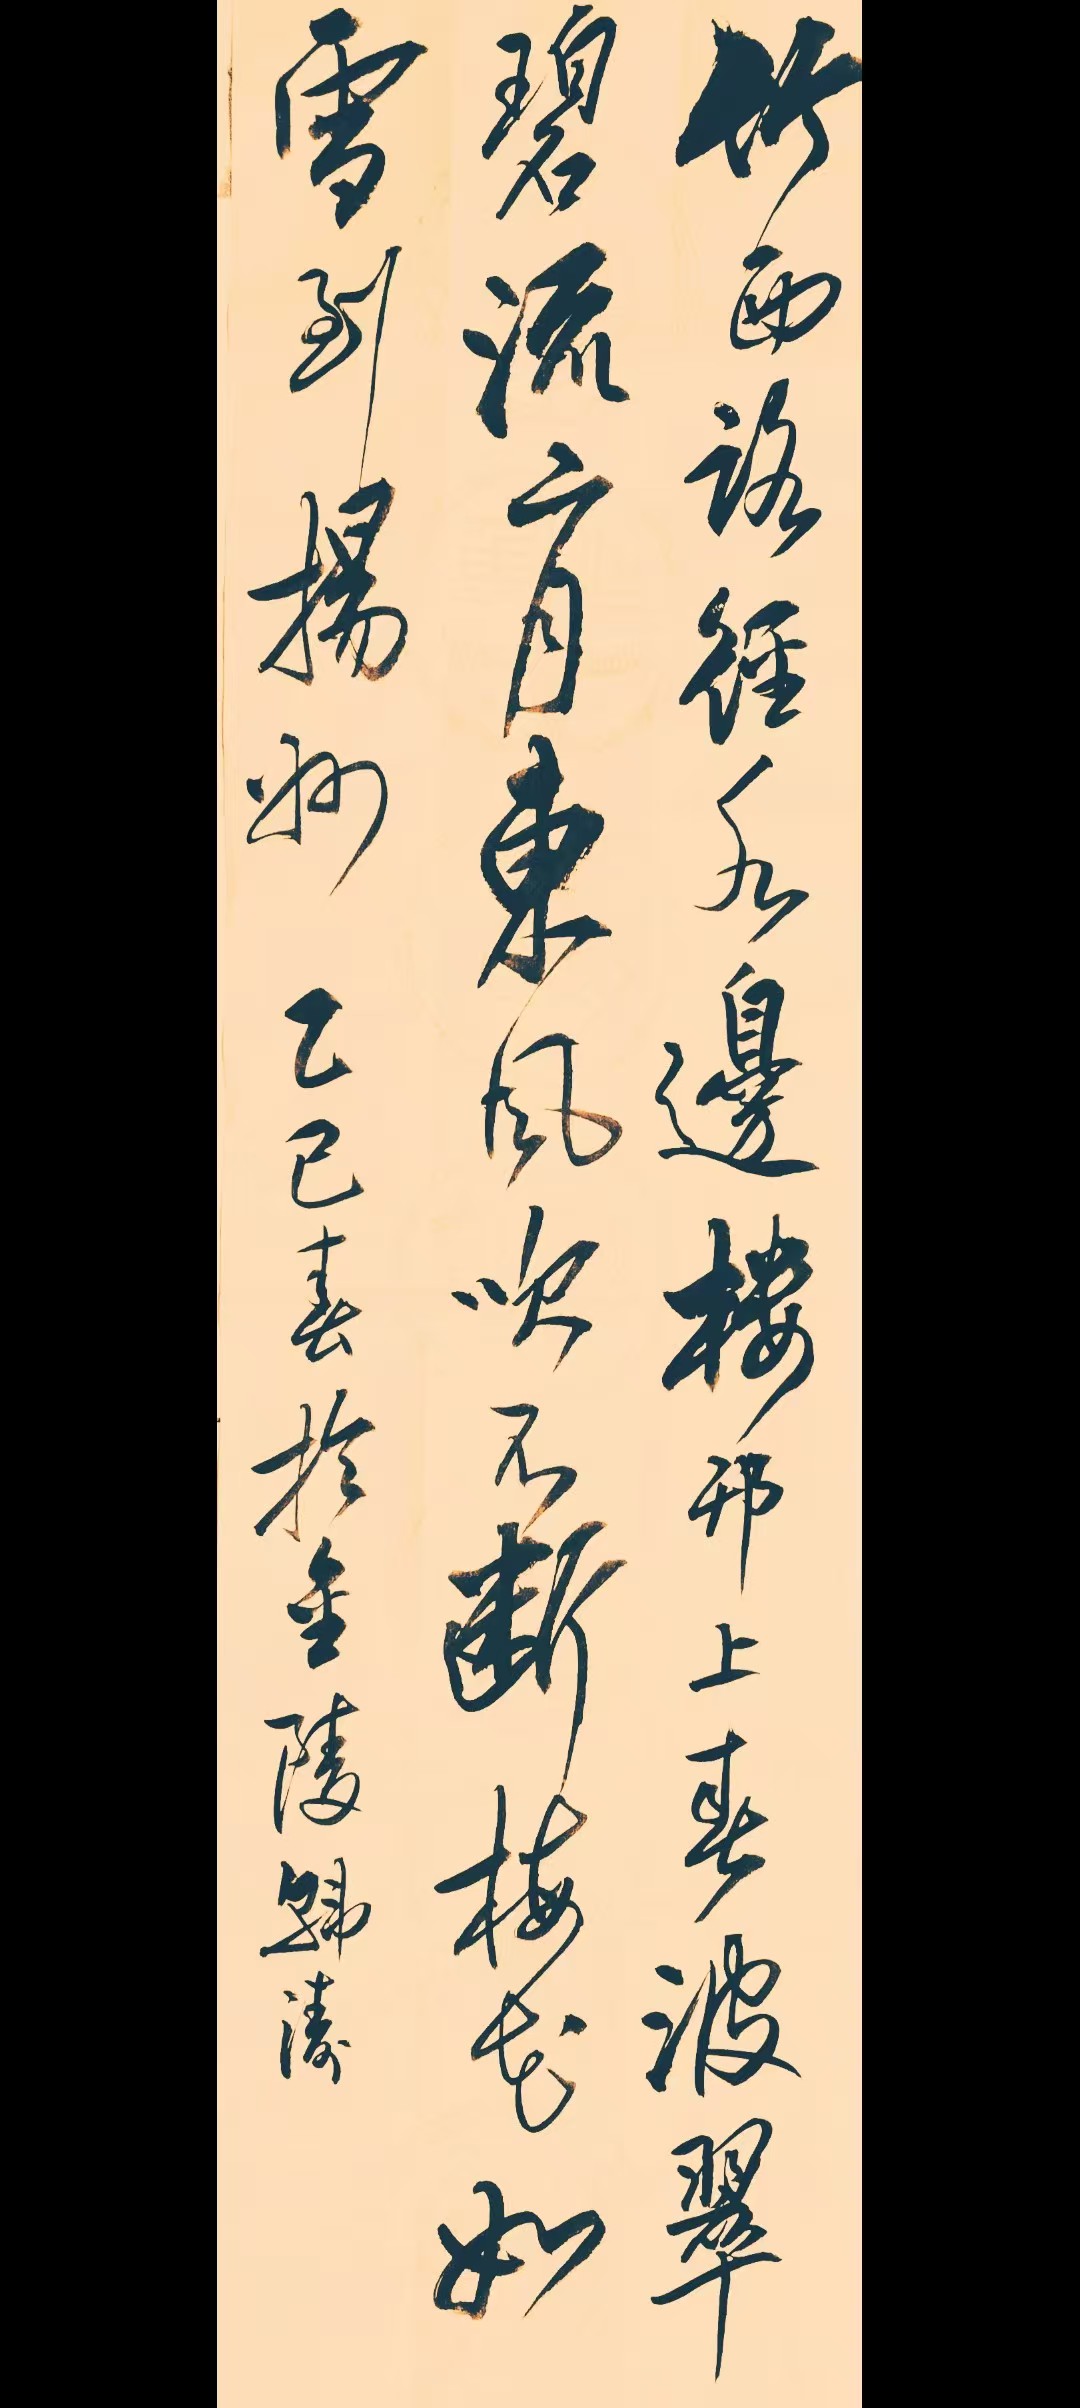 竹西路径水邊樓邗上春波翠
碧流二月東風吹不斷梅花如
雪到揚州
乙巳春於金陵歸濤